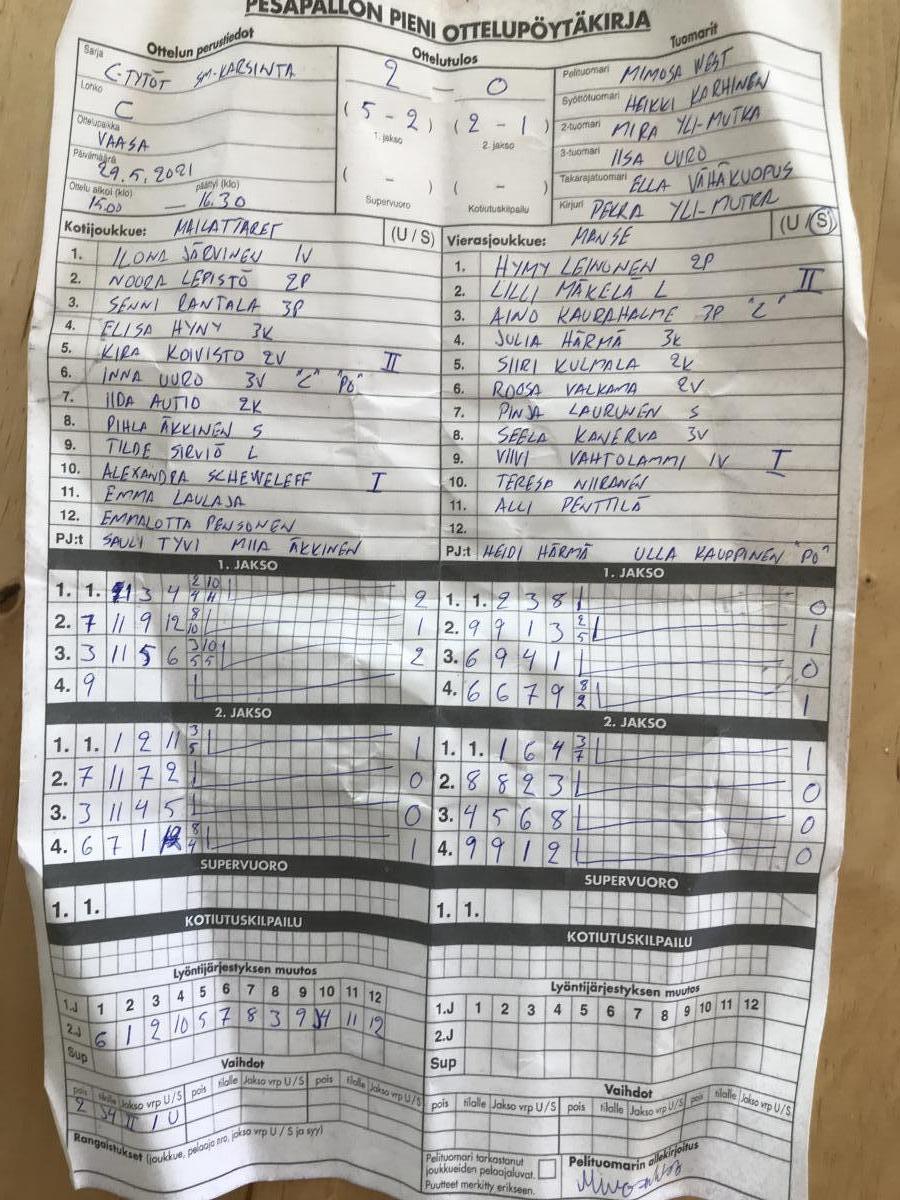 PESÄPALLON PIENI OTTELUPÖYTÄKIRJA
Ottelun perustiedot
Sarja C-TYTÖT SM-KARSINTA
Lohko C
Ottelupaikka VAASA
Päivämäärä 29.5.2021
Ottelu alkoi (klo) 15.00 — päättyi (klo) 16.30
Ottelutulos
2 — 0
(5 - 2) (2 - 1)
1. jakso 2. jakso
( - ) ( - )
Supervuoro Kotiutuskilpailu
Tuomarit
Pelituomari MIMOSA WEST
Syöttötuomari HEIKKI KARHINEN
2-tuomari MIRA YLI-MUTKA
3-tuomari IISA UURO
Takarajatuomari ELLA VÄHÄKUOPUS
Kirjuri PEKKA YLI-MUTKA
Kotijoukkue: MAILATTARET (U / S)
1. ILONA JÄRVINEN 1V
2. NOORA LEPISTÖ 2P
3. SENNI RANTALA 3P
4. ELISA HYNY 3K
5. KIRA KOIVISTO 2V II
6. INNA UURO 3V "C" "PO"
7. IIDA AUTIO 2K
8. PIHLA ÄKKINEN S
9. TILDE SIRVIÖ L
10. ALEXANDRA SCHEWELEFF I
11. EMMA LAULAJA
12. EMMALOTTA PENSONEN
PJ:t SAULI TYVI MIIA ÄKKINEN
Vierasjoukkue: MANSE (U / S)
1. HYMY LEINONEN 2P
2. LILLI MÄKELÄ L II
3. AINO KAURAHALME 3P "C"
4. JULIA HÄRMÄ 3K
5. SIIRI KULMALA 2K
6. ROOSA VALKAMA 2V
7. PINJA LAURUNEN S
8. SEELA KANERVA 3V
9. VIIVI VAHTOLAMMI 1V I
10. TERESA NIIRANEN
11. ALLI PENTTILÄ
12.
PJ:t HEIDI HÄRMÄ ULLA KAUPPINEN "PO"
1. JAKSO
1. 1. 3 4 2
2. 7 11 9 12 8 10 1
3. 3 11 5 6 3 10 5 5 2
4. 9
1. JAKSO
1. 1. 2 3 8 0
2. 9 9 1 3 2 5 1
3. 6 9 4 1 0
4. 6 6 7 9 8 2 1
2. JAKSO
1. 1. 1 2 11 3 5 1
2. 7 11 7 2 0
3. 3 11 4 5 0
4. 6 7 1 8 4 1
2. JAKSO
1. 1. 1 6 4 3 7 1
2. 8 8 2 3 0
3. 4 5 6 8 0
4. 9 9 1 2 0
SUPERVUORO
1. 1.
SUPERVUORO
1. 1.
KOTIUTUSKILPAILU
KOTIUTUSKILPAILU
Lyöntijärjestyksen muutos
1.J 1 2 3 4 5 6 7 8 9 10 11 12
2.J 6 1 2 10 5 7 8 3 9 4 11 12
Sup
Lyöntijärjestyksen muutos
1.J 1 2 3 4 5 6 7 8 9 10 11 12
2.J
Sup
Vaihdot
pois tilalle Jakso vrp U/S pois tilalle Jakso vrp U/S pois tilalle Jakso vrp U/S
2 II 1 U
Rangaistukset (joukkue, pelaaja nro, jakso vrp U / S ja syy)
Vaihdot
pois tilalle Jakso vrp U/S pois tilalle Jakso vrp U/S pois tilalle Jakso vrp U/S
Pelituomari tarkastanut
joukkueiden pelaajaluvat.
Puutteet merkitty erikseen.
Pelituomarin allekirjoitus